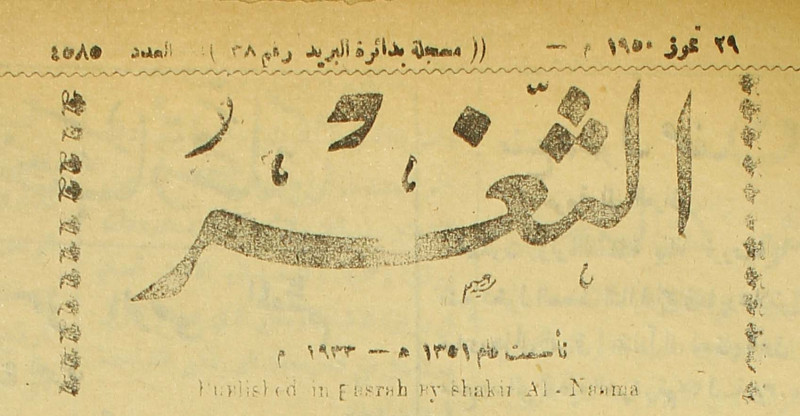 ٢٩ تموز ١٩٥٠ م — (( مسجلة بدائرة البريد رقم ٣٨ )) العدد ٤٥٨٥
الثغر
تأسست عام ١٣٥١ هـ — ١٩٣٣ م
Published in Basrah By Shakir Al - Naama